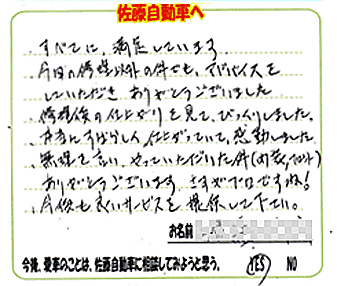 佐藤自動車へ
、すべてに、満足しています。
、今回の修理以外の件でも、アドバイスを
していただき ありがとうございました
、修理後の仕上がりを見て、びっくりしました。
本当にすばらしく仕上がっていて、感動しました
、無理を言い、やっていただいた件(内装、フロント)
ありがとうございます。さすがプロですね!
、今後も良いサービスを提供して下さい。
お名前
今後、愛車のことは、佐藤自動車に相談してみようと思う。 YES NO